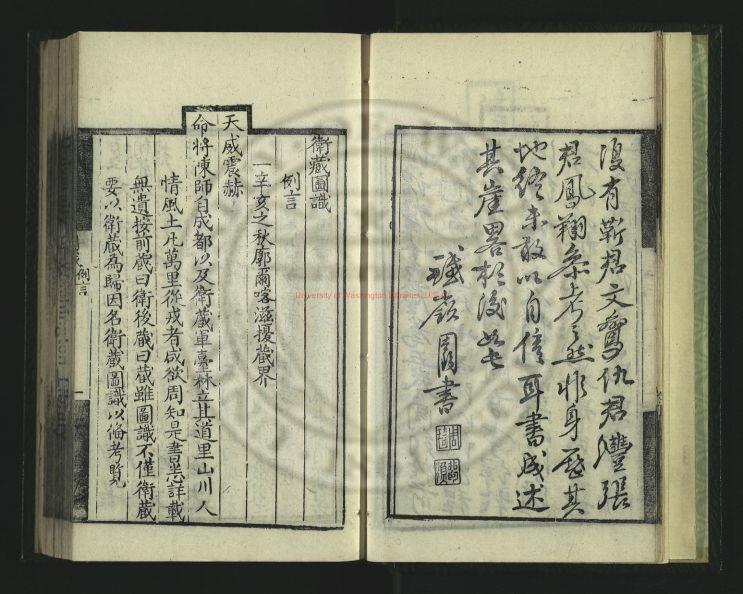 復有靳君文奮仇君灃張
君鳳翔參考之然非身歷其
地終未敢以自信耳書成述
其崖畧於後如此
書
衛藏圖識
例言
一辛亥之秋廓爾喀滋擾藏界
天威震赫
命將陳師自成都以及衛藏軍臺林立其道里山川人
情風土凡萬里從戎者咸欲周知是書悉詳載
無遺按前藏曰衛後藏曰藏雖圖識不僅衛藏
要以衛藏為歸因名衛藏圖識以俻考覽
例言
University of Washington Libraries, USA